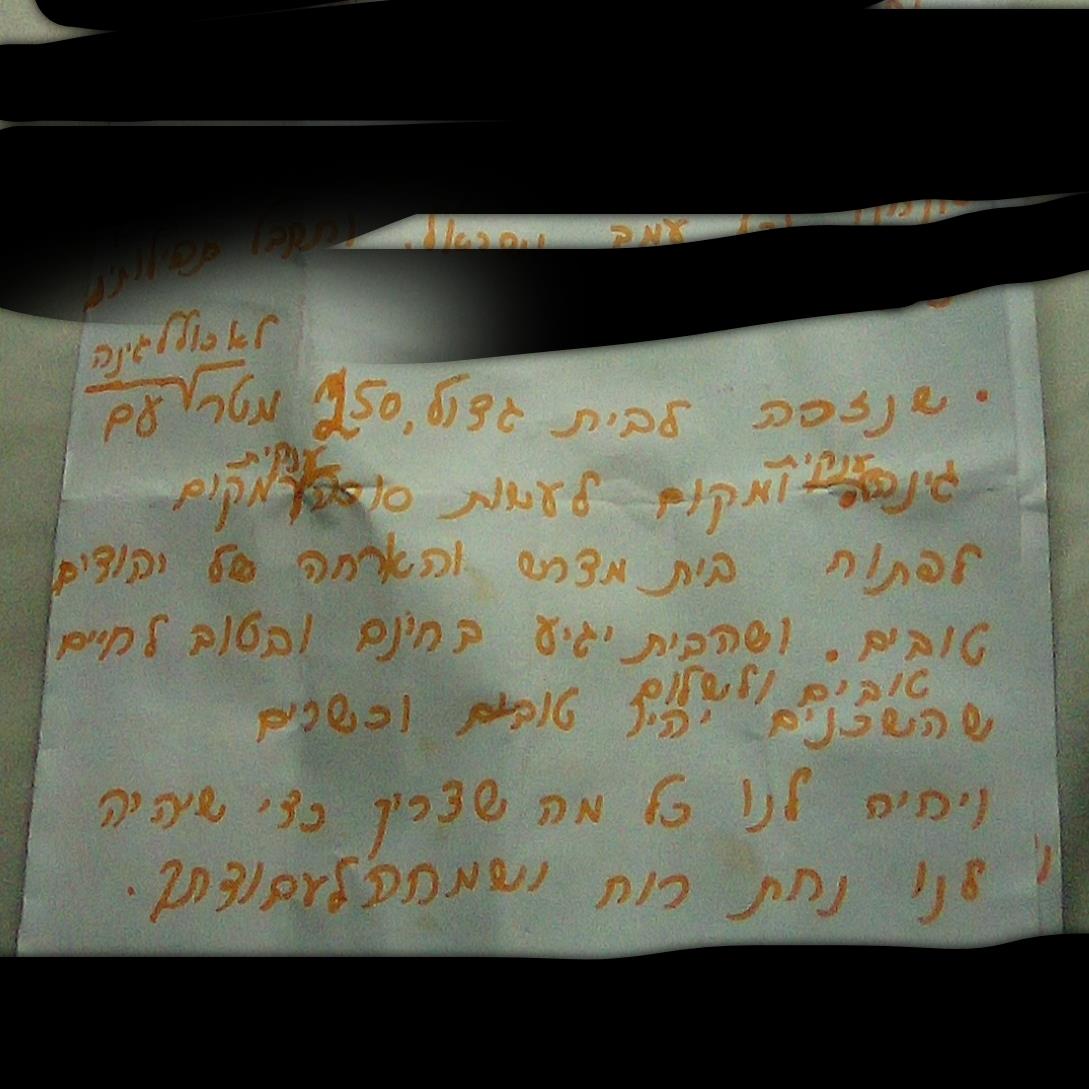 ותקבל תפילותינו
לא כולל גינה
• שנזכה לבית גדול, 250 מטר עם
ענקית
גינה ומקום לעשות סוכה ומקום
לפתוח בית מדרש והארחה של יהודים
טובים. ושהבית יגיע בחינם ובטוב לחיים
טובים ולשלום
שהשכנים יהיו טובים וכשרים
ויהיה לנו כל מה שצריך כדי שיהיה
לנו נחת רוח ושמחה לעבודתך.